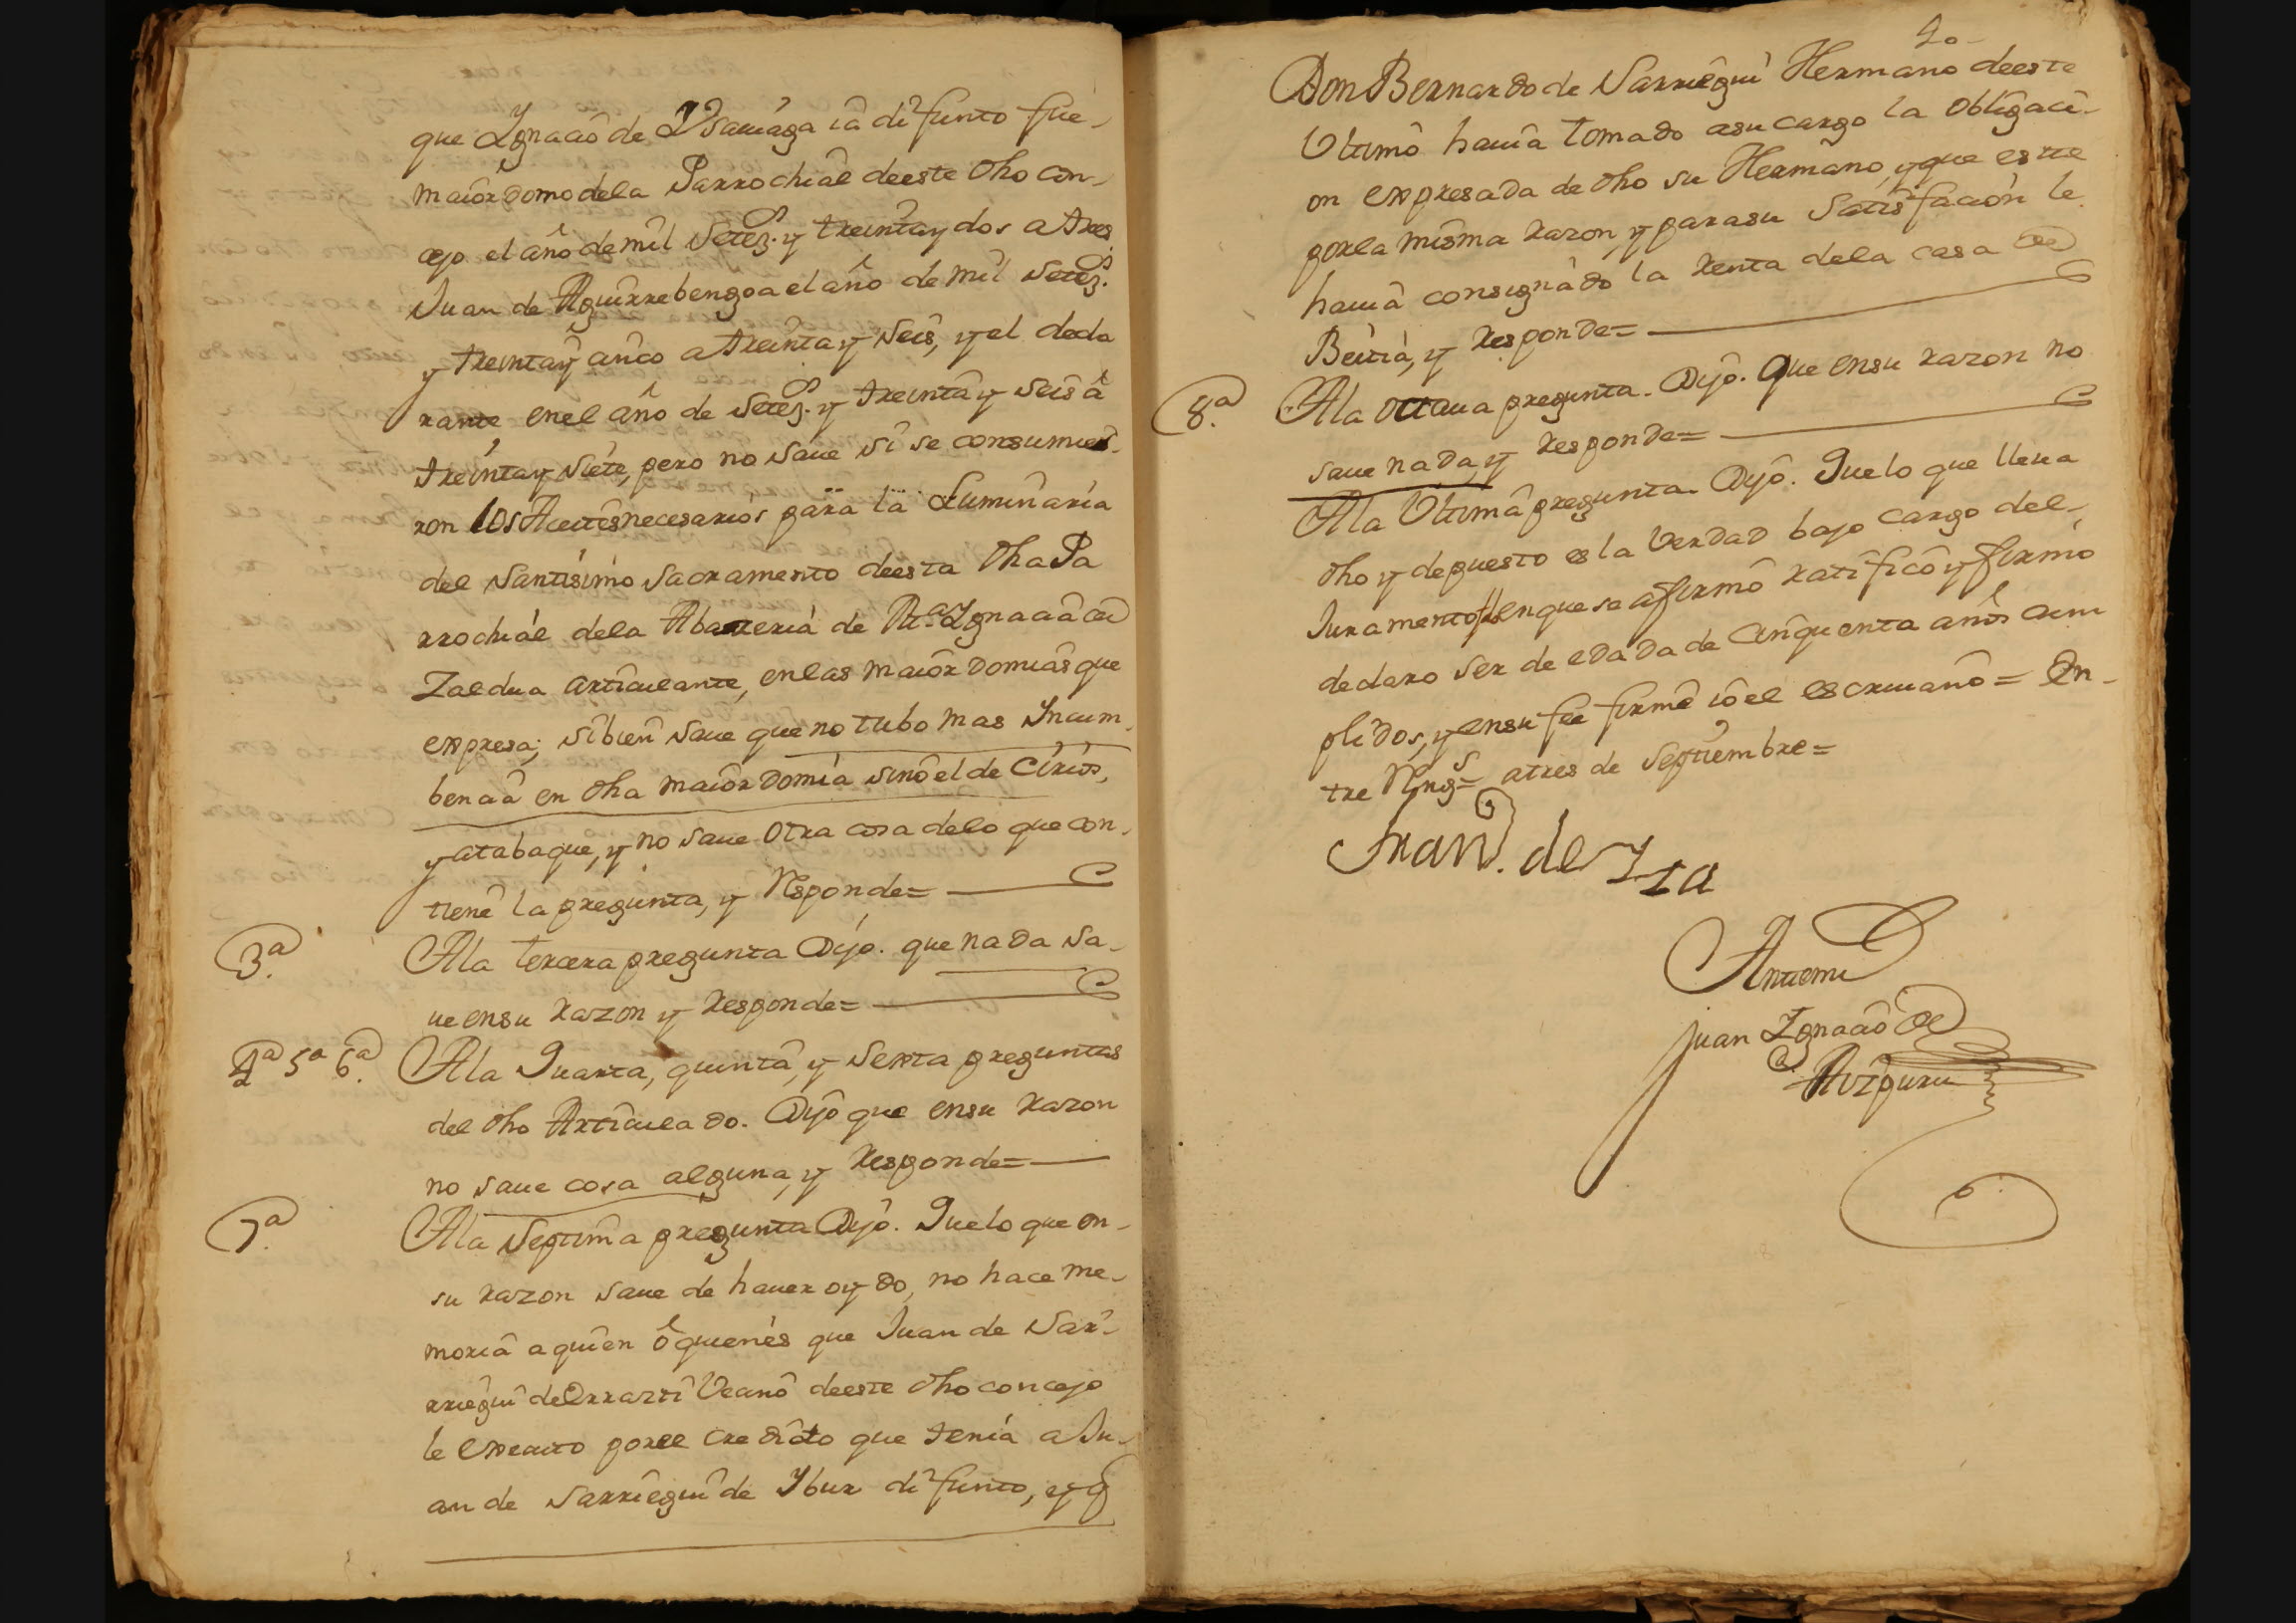 que Ygnacio de Vsarraga ia difunto fue
maiordomo dela Parrochial deeste dho con-
cejo el año de mil Setez.s y treinta y dos a tres
Juan de Aguirrebengoa el año de mil Setez.s
y treinta y cinco a treinta y Seis, y el decla
rante enel año de Setez.s y treinta y Seis â
treinta y Siete, pero no Saue Si se consumie-
ron los Aceites necesarios para la Luminaria
del Santisimo Sacramento deesta dha Pa
rrochial dela Abazeria de M.a Ygnacia de
Zaldua articulante, enlas maiordomias que
expresa; Sibien Saue que no tubo mas Yncum-
bencia en dha maiordomia sino el de Cirios,
y atabaque, y no Saue otra cosa delo que con-
tiene la pregunta, y Responde=
3.a Ala tercera pregunta Dijo. que nada Sa-
ue ensu razon y Responde=
4.a 5.a 6.a Ala Quarta, quinta, y Sexta preguntas
del dho Articulado. Dijo que ensu razon
no Saue cosa alguna, y Responde=
7.a Ala Septima pregunta Dijo. Quelo que en-
su razon Saue de hauer oydo, no hace me-
moria aquien ô quienes que Juan de Sar-
riegui de Orrazti Vecino deeste dho concejo
le executo porel credito que tenia a Ju-
an de Sarriegui de Ybur difunto, y q
40
Don Bernardo de Sarriegui Hermano deeste
Vltimo hauia tomado asu cargo la obligaci-
on expresada de dho su Hermano, y que este
porla misma razon, y para su Satisfacion le
hauia consignado la renta dela casa de
Beitia, y Responde=
8.a Ala octaua pregunta. Dijo. Que ensu razon no
saue nada, y Responde=
Ala Vltima pregunta. Dijo. Quelo que lleua
dho y depuesto es la Verdad bajo cargo del
Juramento en que se afirmô ratificô y firmo
declaro ser de edad de cinquenta años cum
plidos, y ensu fee firmê io el escriuano= En-
tre Rng.s= atres de Septiembre=
Fran.co de Yza
Antemi
Juan Ygnacio de
Aizpuru